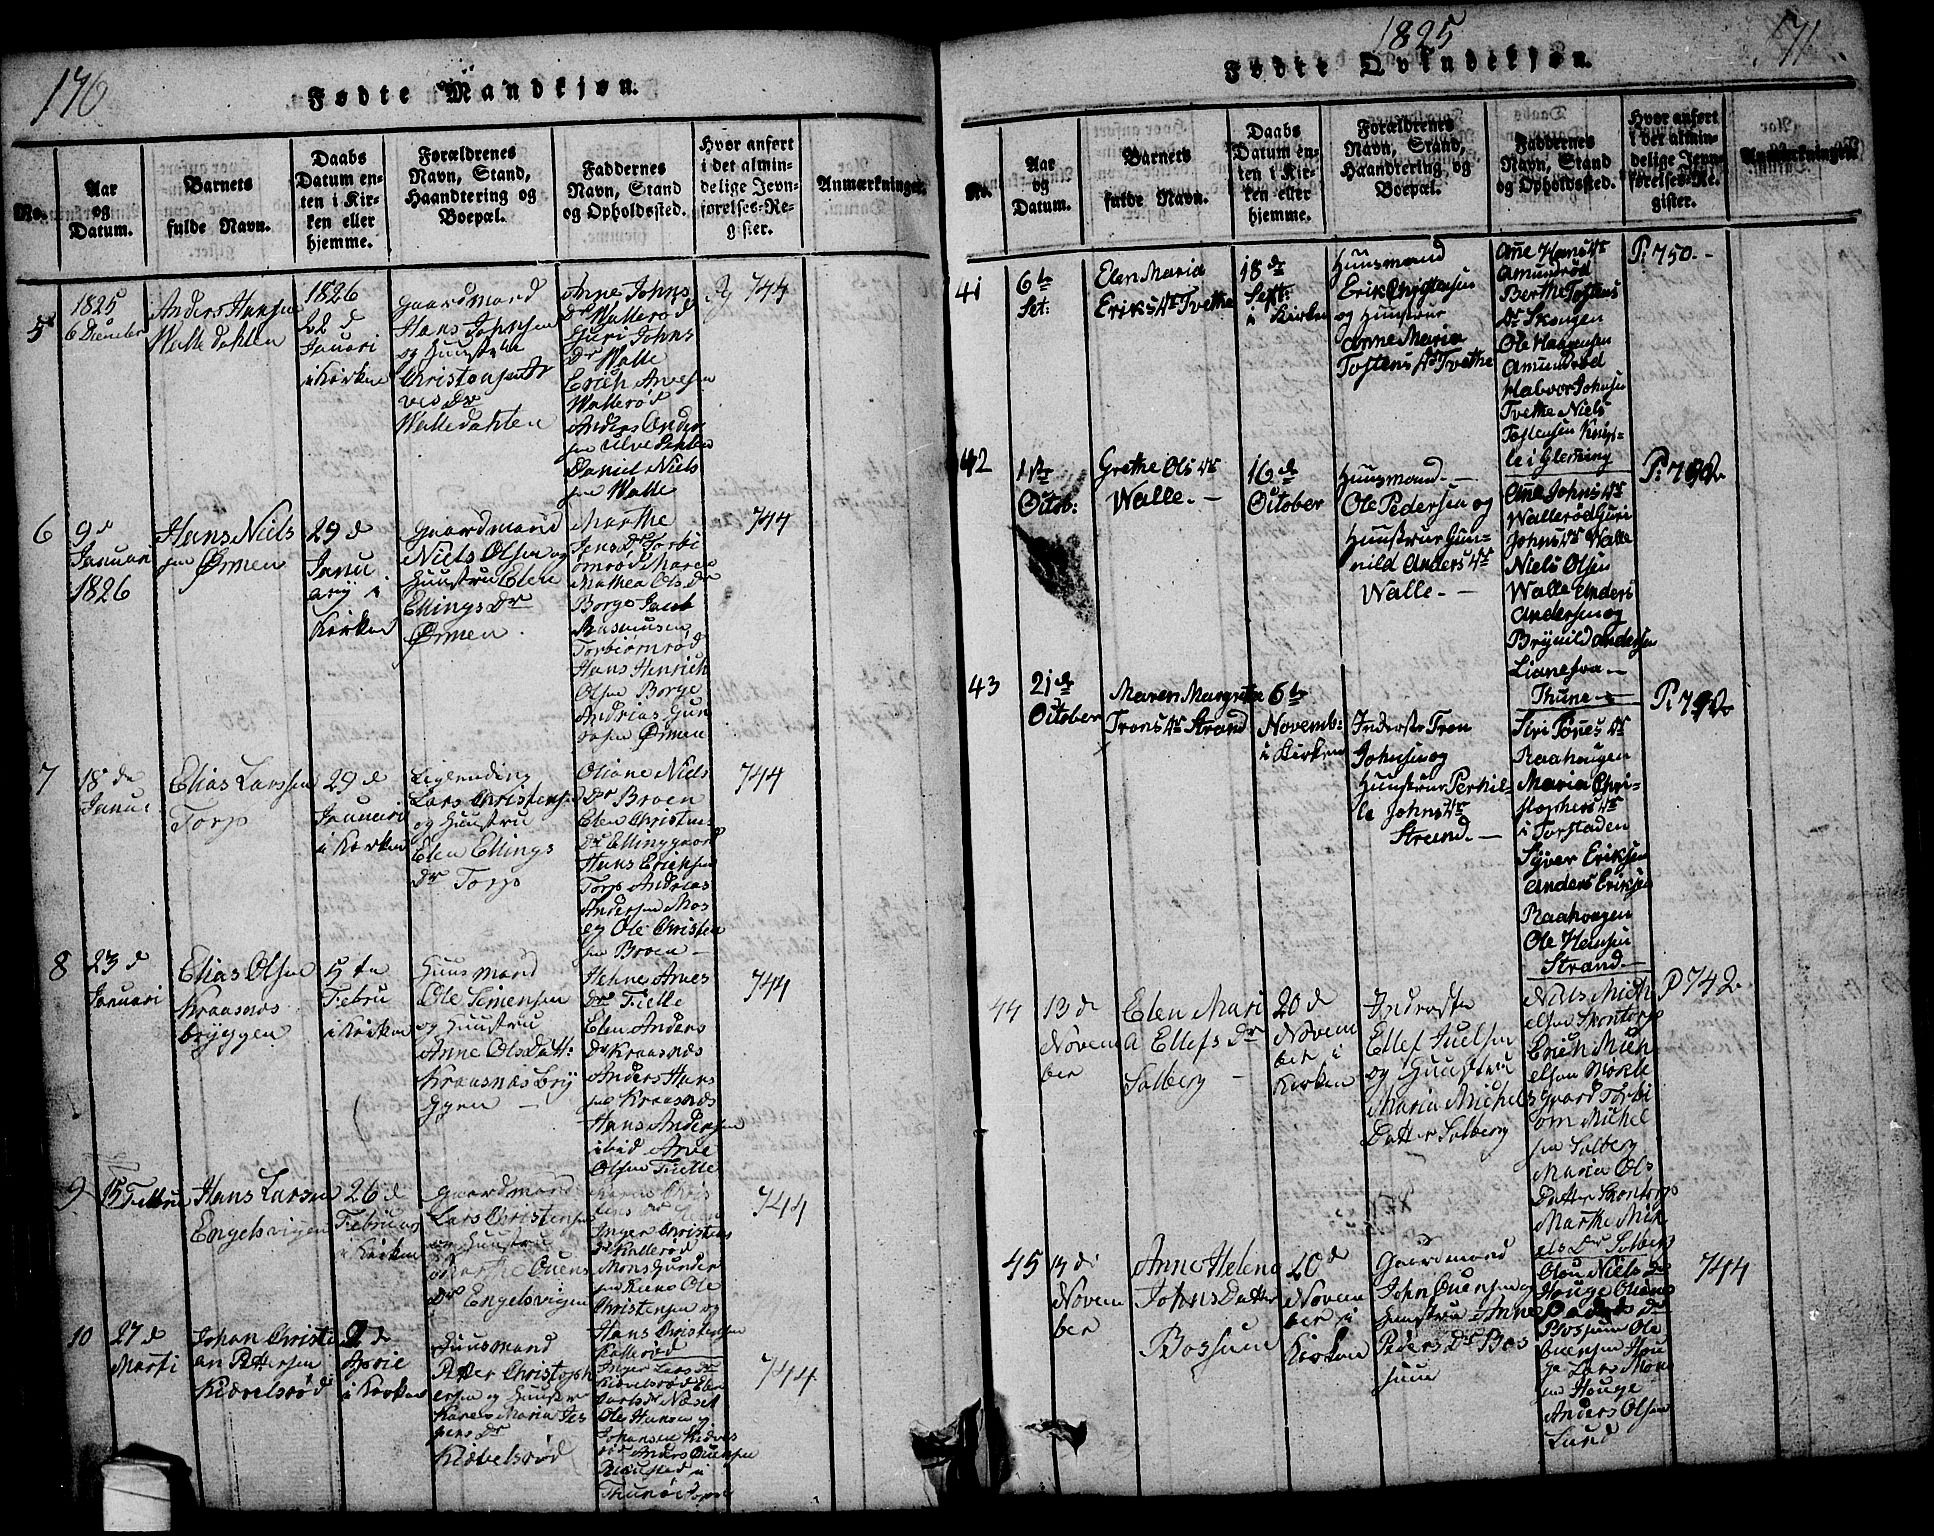 176
Fødte Mandkjøn.
No.
Aar
og
Datum.
Barnets
fulde Navn.
Daabs
Datum en-
ten i Kir-
ken eller
hjemme.
Forældrenes
Navn, Stand,
Haandtering og
Boepæl.
Faddernes
Navn, Stand
og Opholdssted.
Hvor anført
i det almin-
delige Jevn-
førelses-Re-
gister.
Anmærkninger.
5
1825
Anders Hansen
Walledahlen
1826
22 d
Januari
i Kirken
gaardmand
Hans Johnsen
og Huustrue
Walledahlen
Anne Johns
Dr Wallerød
Guri Johns
Dr Walle
Erich Arvesen
Wallerød
Anders Ander
sen
Daniel Niels
sen Walle
744
6
9 d
Januari
1826
Hans Niels
sen Ørmen
29 d
Janu
ary i
Kirken
gaardmand
Niels Olsen og
Huustru Elen
Ellings Dr
Ørmen.
Marthe
Jens Dr Torbi
ørnrød Maren
Mathea Ols Dr
Borge Jacob
Rasmusen
Torbiørnrød
Hans Hinrich
Olsen Borge
Andrias Gun
Ørmen
744
7
18 de
Janu
Elias Larssen
Torp
29 d
Januari
i Kirken
Lars Christensen
og Huustru
Elen Ellings
Dr Torp
Oliane Niels
Dr Broen
Elen Christens
Dr Ellinggaard
Hans Ericksen
Torp Andrias
Andersen Mos
og Ole Christen
sen Broen
744
8
23 d
Januari
Elias Olsen
Kraasnæs
bryggen
5 te
Febru
i Kirken
Huusmand
Ole Simensen
og Huustru
Anne Ols Datt:
Kraasnæs bry
ggen
Helene Arves
Dr Tielle
Elen Anders
Dr Kraasnæs
Anders Hans
sen Kraasnæs
Hans Andersen
ibid Arve
Olsen Tielle
744
9
15 Febru
Hans Larsen
Engelsvigen
26 d
Februar
i Kirken
gaardmand
Lars Christensen
og Huustru
Marthe Ouens
Dr Engelsvigen
Karen Chris
tens Dr
Inger Christens
Dr Kallerød
Mons Gunder
sen
Christensen og
Hans Christensen
Kallerød
744
10
27 d
Marti
Johan Christi
an Pettersen
Kiølvelsrød
2 d
April
i Kirken
Huusmand
Peter Christoph
ersen og Huustru
Karen Maria Jes
pers Dr
Kiølvelsrød
Inger Lars Dr
Ole Hansen
Johansen
744
1825
171
Fødte Qvindekjøn.
No.
Aar
og
Datum.
Barnets
fulde Navn.
Daabs
Datum en-
ten i Kir-
ken eller
hjemme.
Forældrenes
Navn, Stand,
Haandtering og
Boepæl.
Faddernes
Navn, Stand
og Opholdssted.
Hvor anført
i det almin-
delige Jevn-
førelses-Re-
gister.
Anmærkninger.
41
6te
Set:
Elen Maria
Eriks Dr Tvethe
18 de
Sept:
i Kirken
Huusmand
Erik Christensen
og Huustrue
Anne Maria
Tostens Dr Tvethe
Ane Hans Dr
Amundrød
Berthe Tostens
Dr Skougen
Ole Haagensen
Amundrød
Halvor Johnsen
Tvethe Niels
Tostensen Knip-
le i Glemming
P: 750.-
42
1ste
Octob:
Grethe Ols Dr
Walle.-
16 de
October
Huusmand.-
Ole Pedersen og
Huustrue Gun-
nild Anders Dr
Walle.-
Ane Johns Dr
Wallerød Guri
Johns Dr Walle
Niels Olsen
Walle Anders
Andersen og
Brynild Andersen
43
21 de
October
Maren Margrethe
Trons Dr Strand
6te
Novemb:
i Kirken
Inderste Tron
Johnsen og
Huustrue Pernil-
le Johns Dr
Strand.-
Thune
Siri Tønes Dr
Raahaugen
Maria Chri-
stophers Dr
i Torstaden
Syver Eriksen
Anders Eriksen
Raahougen
Ole Hansen
Strand.-
44
13 de
Novem
ber
Elen Mari
a Ellefs Dr
Solberg
20 d
Novem
ber i
Kirken
Inderste
Ellef Juelsen
og Huustru
Maria Michels
Datter Solberg
Niels Mich
elsen Skontorp
Erich Mich
elsen Mørkle
Gaard Torbi
ørn Michel
sen Solberg
Maria Ols
Datter Skontorp
Marthe Mik
els Dr Solberg
P 742.
45
13 de
Novem
ber
Anne Helene
Johns Datter
Bossum
20 d
Novem
ber i
Kirken
Gaardmand
John Ouensen og
Huustru Anne
Peders Dr Bos
sum
Olou Niels Dr
Houge Oliane
Bossum Ole
Ouensen Hou
ge Lars Mon
sen Houge
Anders Olsen
Lund
744